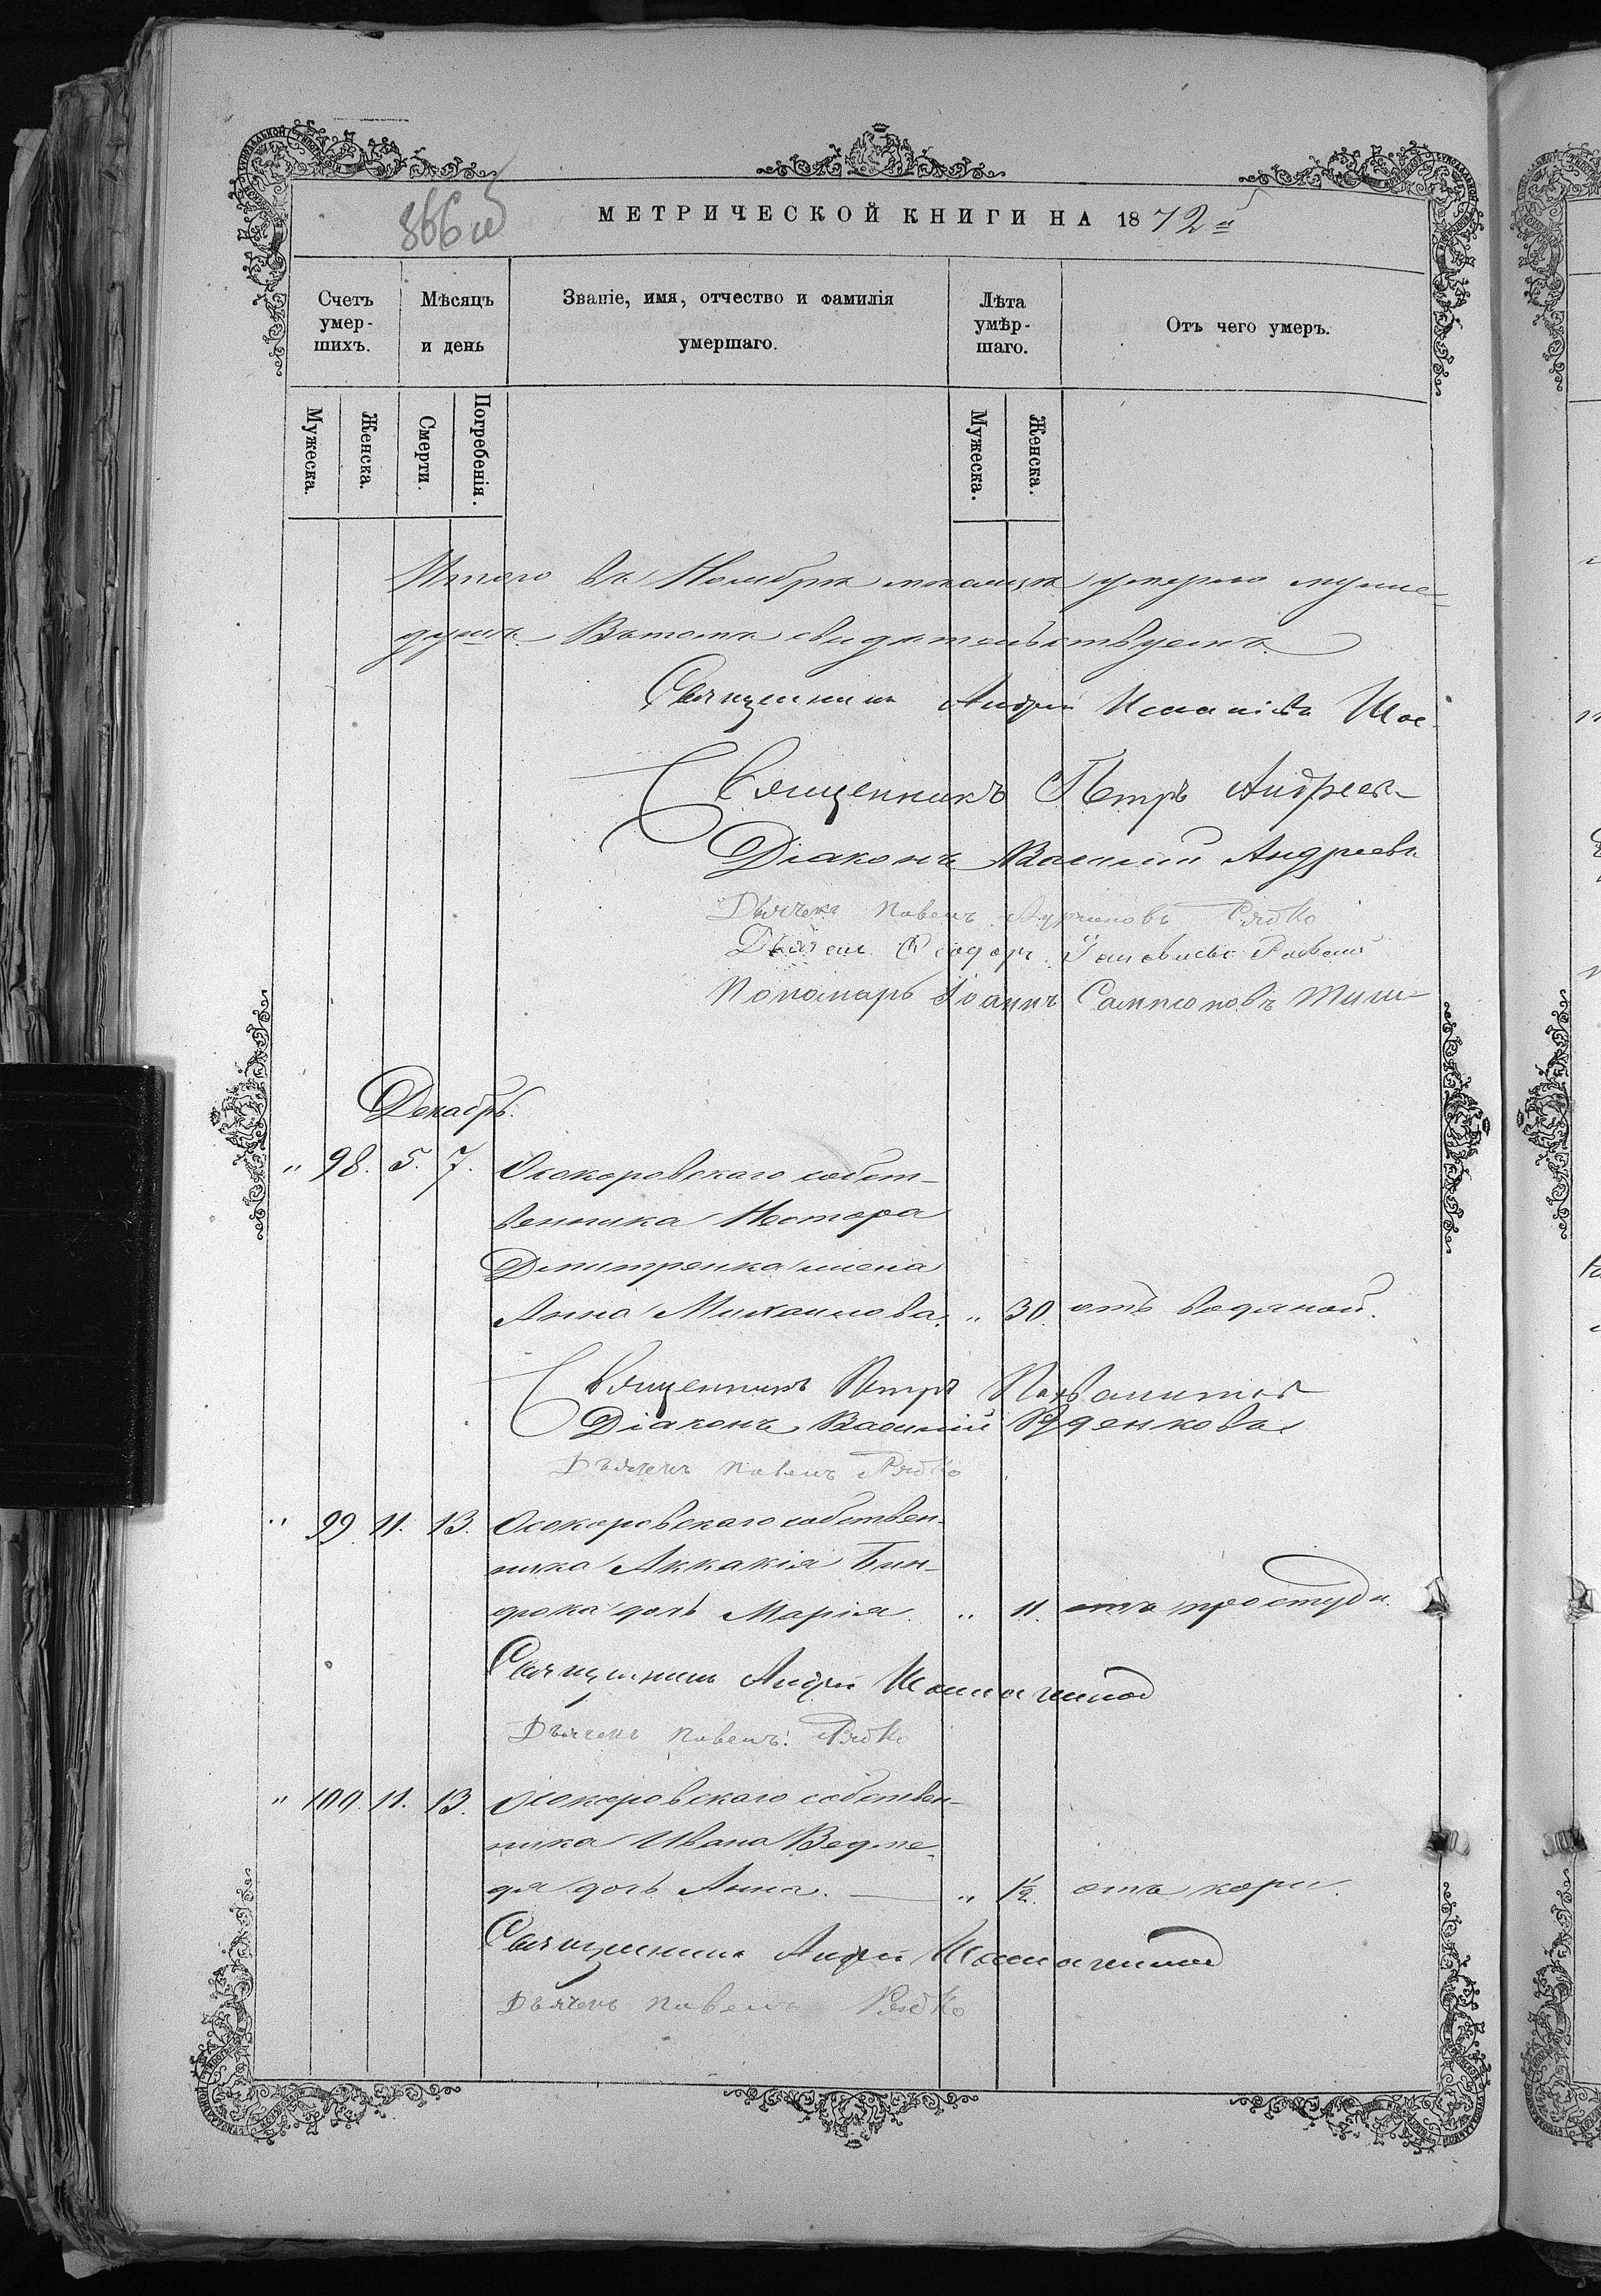 366 об
МЕТРИЧЕСКОЙ КНИГИ НА 1872й
Счетъ умер-шихъ.
Мѣсяцъ и день
Званіе, имя, отчество и фамилія умершаго.
Лѣта умѣр-шаго.
Отъ чего умеръ.
Мужеска.
Женска.
Смерти.
Погребенія.
Мужеска.
Женска.
Итого въ Ноябрѣ мѣсяцѣ умерло муже-
душъ. Въ томъ свидѣтельствуемъ
Священникъ Андрей
Священникъ Петръ Андреев-
Діаконъ Василій Андреевъ
Дьячекъ Павелъ Рябко
Дьячекъ Ѳеодоръ
Пономарь Іоаннъ Сампсоновъ
Декабрь.
" 98. 5. 7. Осокоровскаго собст-
венника Нестора
Дмитренка жена
Анна Михаилова. " 30. отъ водяной.
Священникъ Петръ
Діаконъ Василій
Дьячекъ Павелъ Рябко
" 99 11. 13. Осокоровскаго собствен-
ника Аккакія Бин-
дюка дочь Марія. " 11. отъ простуды.
Священникъ Андрей
Дьячекъ Павелъ Рябко
" 100. 11. 13. Осокоровскаго собствен-
ника Ивана Ведме-
дя дочь Анна. " 1½. отъ кори.
Священникъ Андрей
Дьячекъ Павелъ Рябко